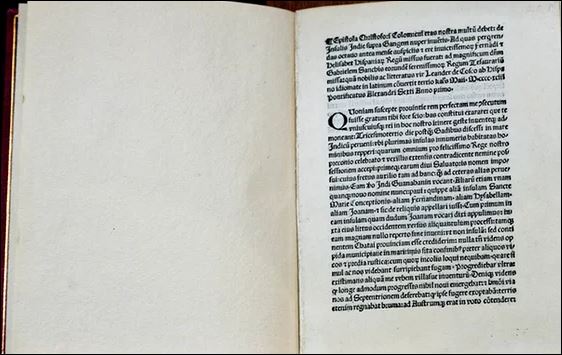 ¶ Epistola Christofori Colom: cui etas nostra multũ debet: de
Insulis Indie supra Gangem nuper inuẽtis. Ad quas perqren-
das octauo antea mense auspiciis ⁊ ere inuictissemoꝝ Fernãdi ⁊
Helisabet Hispaniaꝝ Regũ missus fuerat: ad magnificum dñm
Gabrielem Sanchis eorundẽ serenissimoꝝ Regum Tesaurariũ
missa: quã nobilis ac litteratus vir Leander de Cosco ab Hispa
no idiomate in latinum cõuertit tertio kaĺs Maii M cccc xciii
Pontificatus Alexandri Sexti Anno primo.
QUoniam suscepte prouintie rem perfectam me ꝯsecutum
fuisse gratum tibi fore scio: has constitui exarare: que te
vniuscuiusꝗ rei in hoc nostro itinere geste inuenteꝗ ad-
moneant: Tricesimotertio die postꝗ̃ Gadibus discessi in mare
Indicũ perueni: vbi plurimas insulas innumeris habitatas ho-
minibus repperi: quarum omnium pro felicissimo Rege nostro
preconio celebrato ⁊ vexillis extensis contradicente nemine pos-
sessionem accepi: primeꝗ earum diui Saluatoris nomen impo-
sui: cuius fretus auxilio tam ad hanc: ꝗ̃ ad ceteras alias perue-
nimus. Eam ꝟo Indi Guanahanin vocant. Aliarũ etiam vnam
quanꝗ nouo nomine nuncupaui: quippe aliã insulam Sancte
Marie Conceptionis. aliam Fernandinam. aliam Hysabellam.
aliam Joanam. ⁊ sic de reliquis appellari iussi. Cum primum in
eam insulam quam dudum Joanam vocari dixi appulimus: iu
xta eius littus occidentem versus aliquantulum processi: tamꝗ
eam magnam nullo reperto fine inueni: vt non insulã: sed conti
nentem Chatai prouinciam esse crediderim: nulla tñ videns op
pida municipiaue in maritimis sita confinibꝰ preter aliquos vi-
cos ⁊ predia rustica: cum quoꝝ incolis loqui nequibam. quare si
mul ac nos videbant surripiebant fugam. Progrediebar vltra:
existimans aliquã me vrbem villasue inuenturũ. Deniꝗ videns
ꝙ longe admodum progressis nihil noui emergebat: ⁊ hmõi via
nos ad Septentrionem deferebat: ꝙ ipse fugere exoptabã: terris
etenim regnabat bruma: ad Austrumꝗ erat in voto cõtendere: